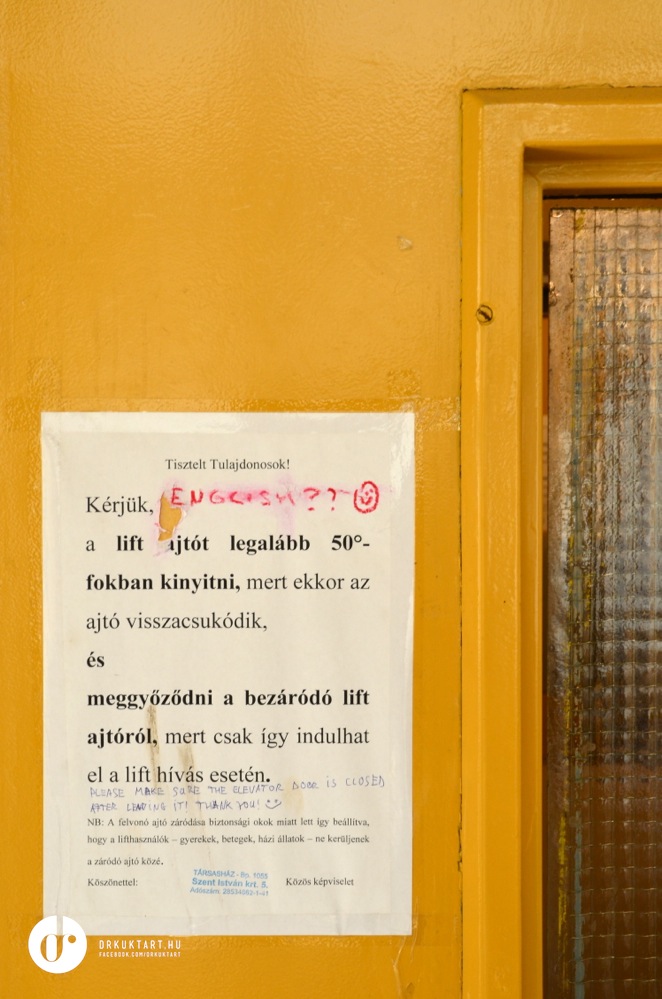 Tisztelt Tulajdonosok!
Kérjük, ENGLISH??
a lift ajtót legalább 50°-
fokban kinyitni, mert ekkor az
ajtó visszacsukódik,
és
meggyőződni a bezáródó lift
ajtóról, mert csak így indulhat
el a lift hívás esetén.
PLEASE MAKE SURE THE ELEVATOR DOOR IS CLOSED
AFTER LEAVING IT! THANK YOU!
NB: A felvonó ajtó záródása biztonsági okok miatt lett így beállítva,
hogy a lifthasználók – gyerekek, betegek, házi állatok – ne kerüljenek
a záródó ajtó közé.
Köszönettel:
TÁRSASHÁZ - Bp. 1055
Szent István krt. 5.
Adószám: 28534062-1-41
Közös képviselet
DRKUKTART.HU
FACEBOOK.COM/DRKUKTART